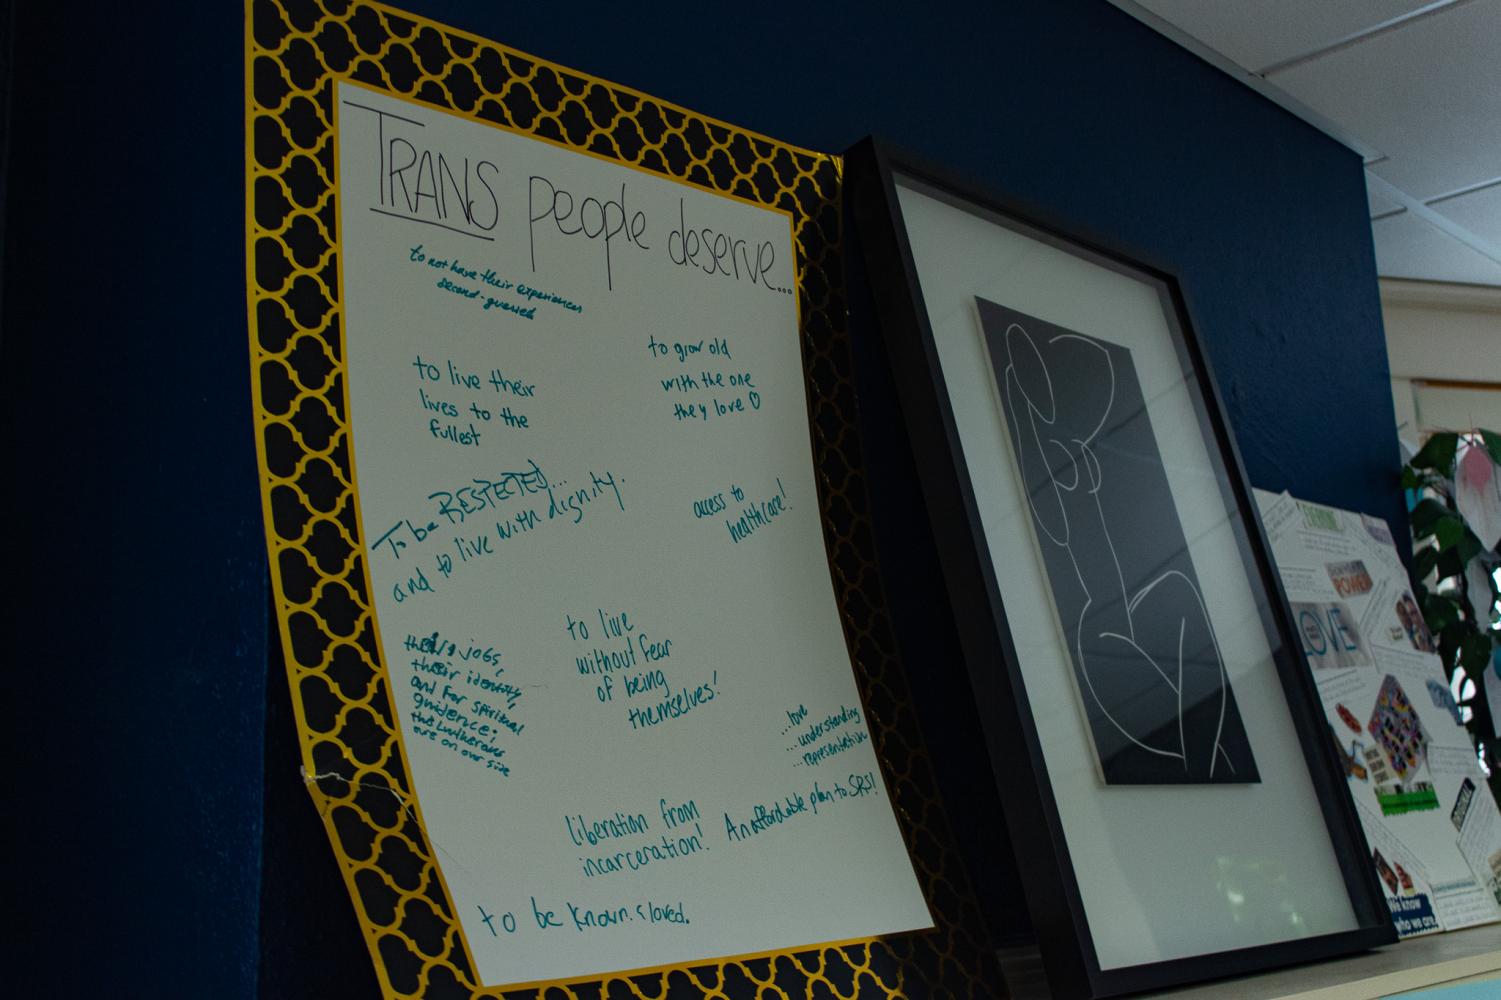 TRANS people deserve...
to not have their experiences
second-guessed
to live their
lives to the
fullest
to grow old
with the one
they love ♡
To be RESPETED...
and to live with dignity.
access to
healthcare!
jobs,
their identity,
and for spiritual
guidence;
the Lutherans
are on our side
to live
without fear
of being
themselves!
...love
...understanding
...representation
liberation from
incarceration!
An affordable plan to SRS!
to be known & loved.
EVERYONE
POWER
LOVE
We know
who we are